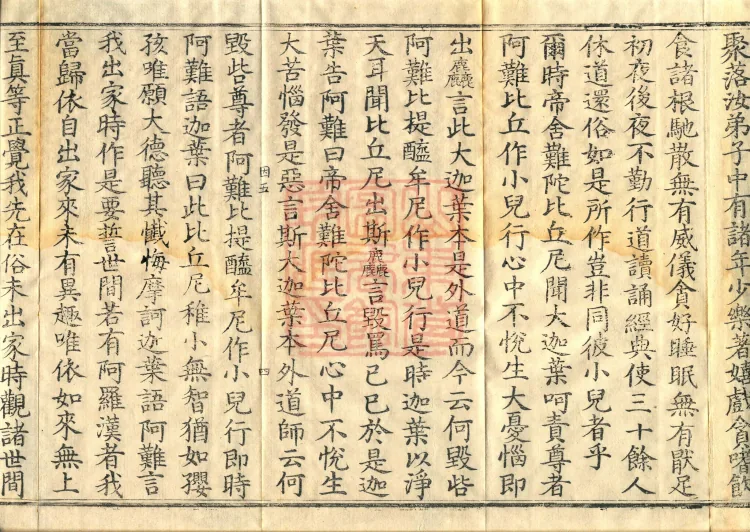 聚落汝弟子中有諸年少樂著嬉戲貪嗜飲
食諸根馳散無有威儀貪好睡眠無有猒足
初夜後夜不勤行道讀誦經典使三十餘人
休道還俗如是所作豈非同彼小兒者乎
爾時帝舍難陀比丘尼聞大迦葉呵責尊者
阿難比丘作小兒行心中不悅生大憂惱即
出麤言此大迦葉本是外道而今云何毀呰
阿難比提醯牟尼作小兒行是時迦葉以淨
天耳聞比丘尼出斯麤言毀罵己已於是迦
葉告阿難曰帝舍難陀比丘尼心中不悅生
大苦惱發是惡言斯大迦葉本外道師云何
毀呰尊者阿難比提醯牟尼作小兒行即時
因五
四
阿難語迦葉曰此比丘尼稚小無智猶如嬰
孩唯願大德聽其懺悔摩訶迦葉語阿難言
我出家時作是要誓世間若有阿羅漢者我
當歸依自出家來未有異趣唯依如來無上
至真等正覺我先在俗未出家時觀諸世間